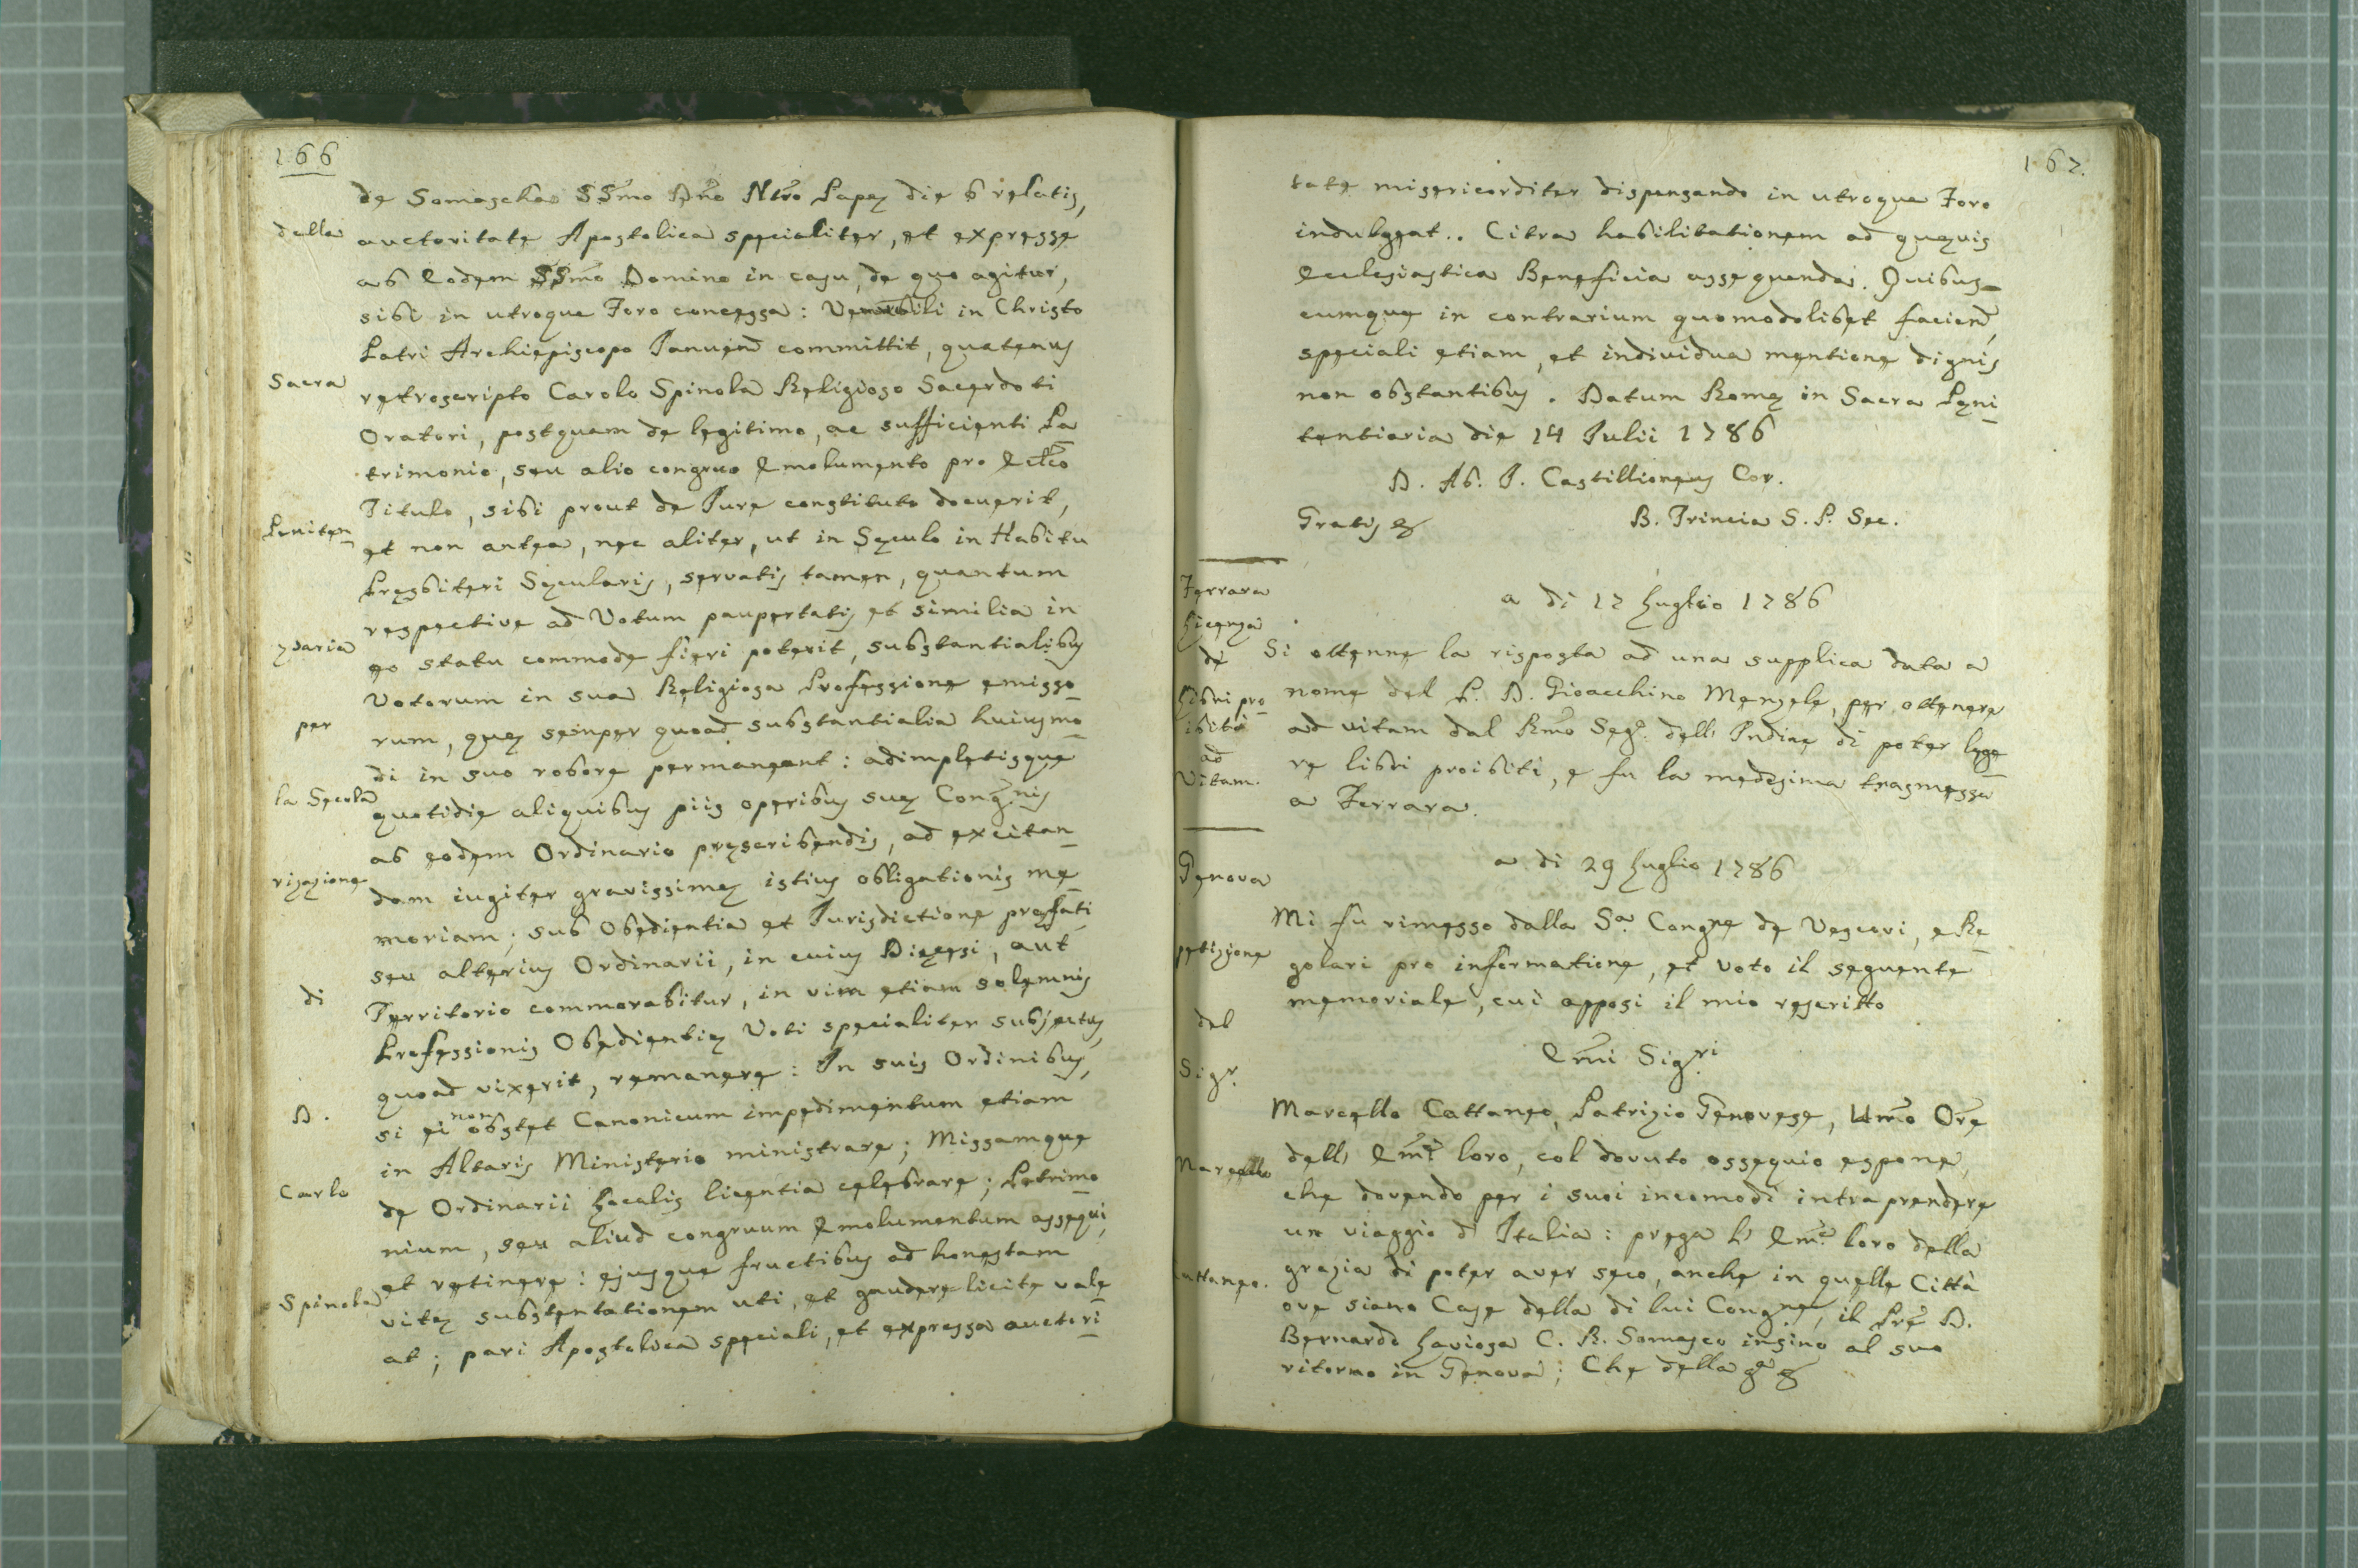 166
de Somascha SSmo Dno Ntro Papæ die 6 relatis,
auctoritate Apostolica specialiter, et expresse
ab Eodem SSmo Domino in casu, de quo agitur,
sibi in utroque Foro concessa: Venerabili in Christo
Patri Archiepiscopo Januen committit, quatenus
retroscripto Carolo Spinola Religioso Sacerdoti
Oratori, postquam de legitimo, ac sufficienti Pa
trimonio, seu alio congruo Emolumento pro Ecclco
Titulo, sibi prout de Jure constituto docuerit,
et non antea, nec aliter, ut in Sæculo in Habitu
Presbiteri Sæcularis, servatis tamen, quantum
respective ad Votum paupertatis et similia in
eo statu commode fieri poterit, substantialibus
Votorum in sua Religiosa Professione emisso
rum, quæ semper quoad substantialia huiusmo
di in suo robore permaneant: adimpletisque
quotidie aliquibus piis operibus suæ Congnis
ab eodem Ordinario præscribendis, ad excitan
dam iugiter gravissimæ istius obligationis me
moriam; sub Obedientia et Jurisdictione præfati
seu alterius Ordinarii, in cuius Diœcesi, aut
Territorio commorabitur, in vim etiam solemnis
Professionis Obedientiæ Voti specialiter subjectus,
quoad vixerit, remanere: In suis Ordinibus,
si ei non obstet Canonicum impedimentum etiam
in Altaris Ministerio ministrare; Missamque
de Ordinarii Localis licentia celebrare; Patrimo
nium, seu aliud congruum Emolumentum assequi,
et retinere: ejusque fructibus ad honestam
vitæ substentationem uti, et gaudere licite vale
at; pari Apostolica speciali, et expressa auctori
della
Sacra
Peniten
zaria
per
la Secola
rizazione
di
D.
Carlo
Spinola
167.
tate misericorditer dispensando in utroque Foro
indulgeat.. Citra habilitationem ad quævis
Ecclesiastica Beneficia assequenda. Quibus
cumque in contrarium quomodolibet facien,
speciali etiam, et individua mentione dignis
non obstantibus. Datum Romæ in Sacra Pæni
tentiaria die 14 Julii 1786
D. Ab. J. Castillioneus Cor.
Gratis &
B. Princia S. P. Sec.
Ferrara
Licenza
de
Libri pro
ibiti
ad
Vitam.
a di 17 Luglio 1786
Si ottenne la risposta ad una supplica data a
nome del P. D. Gioacchino Menzele, per ottenere
ad vitam dal Rmo Segr. dell' Indice di poter legge
re libri proibiti, e fu la medesima trasmessa
a Ferrara.
Genova
petizione
del
Sigr.
Marcello
attaneo.
a di 29 Luglio 1786
Mi fu rimesso dalla Sa. Congne de Vescovi, e Re
golari pro informatione, et voto il seguente
memoriale, cui apposi il mio rescritto
Emi Sigri
Marcello Cattaneo, Patrizio Genovese, Umo Ore
dell' Emze loro, col dovuto ossequio espone,
che dovendo per i suoi incomodi intraprendere
un viaggio d' Italia: prega l' Emze loro della
grazia di poter aver seco, anche in quelle Città
ove siano Case della di lui Congne, il Pre D.
Bernardo Laviosa C. R. Somasco insino al suo
ritorno in Genova; Che della ga &